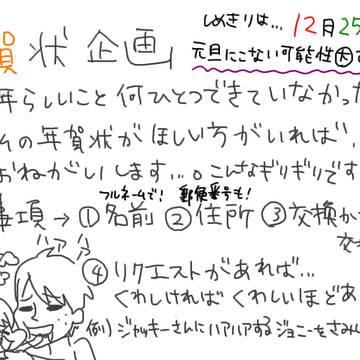 しめきりは… 12月25
賀状企画
元旦にこない可能性大で
年らしいこと何ひとつできていなかった
の年賀状がほしい方がいれば、
おねがいします…。こんなギリギリです
フルネームで! 郵便番号も!
事項→①名前 ②住所 ③交換か
交
ハァハァ
④リクエストがあれば…
くわしければくわしいほどあ
例)ジャッキーさんにハアハアするジョニーをさみ